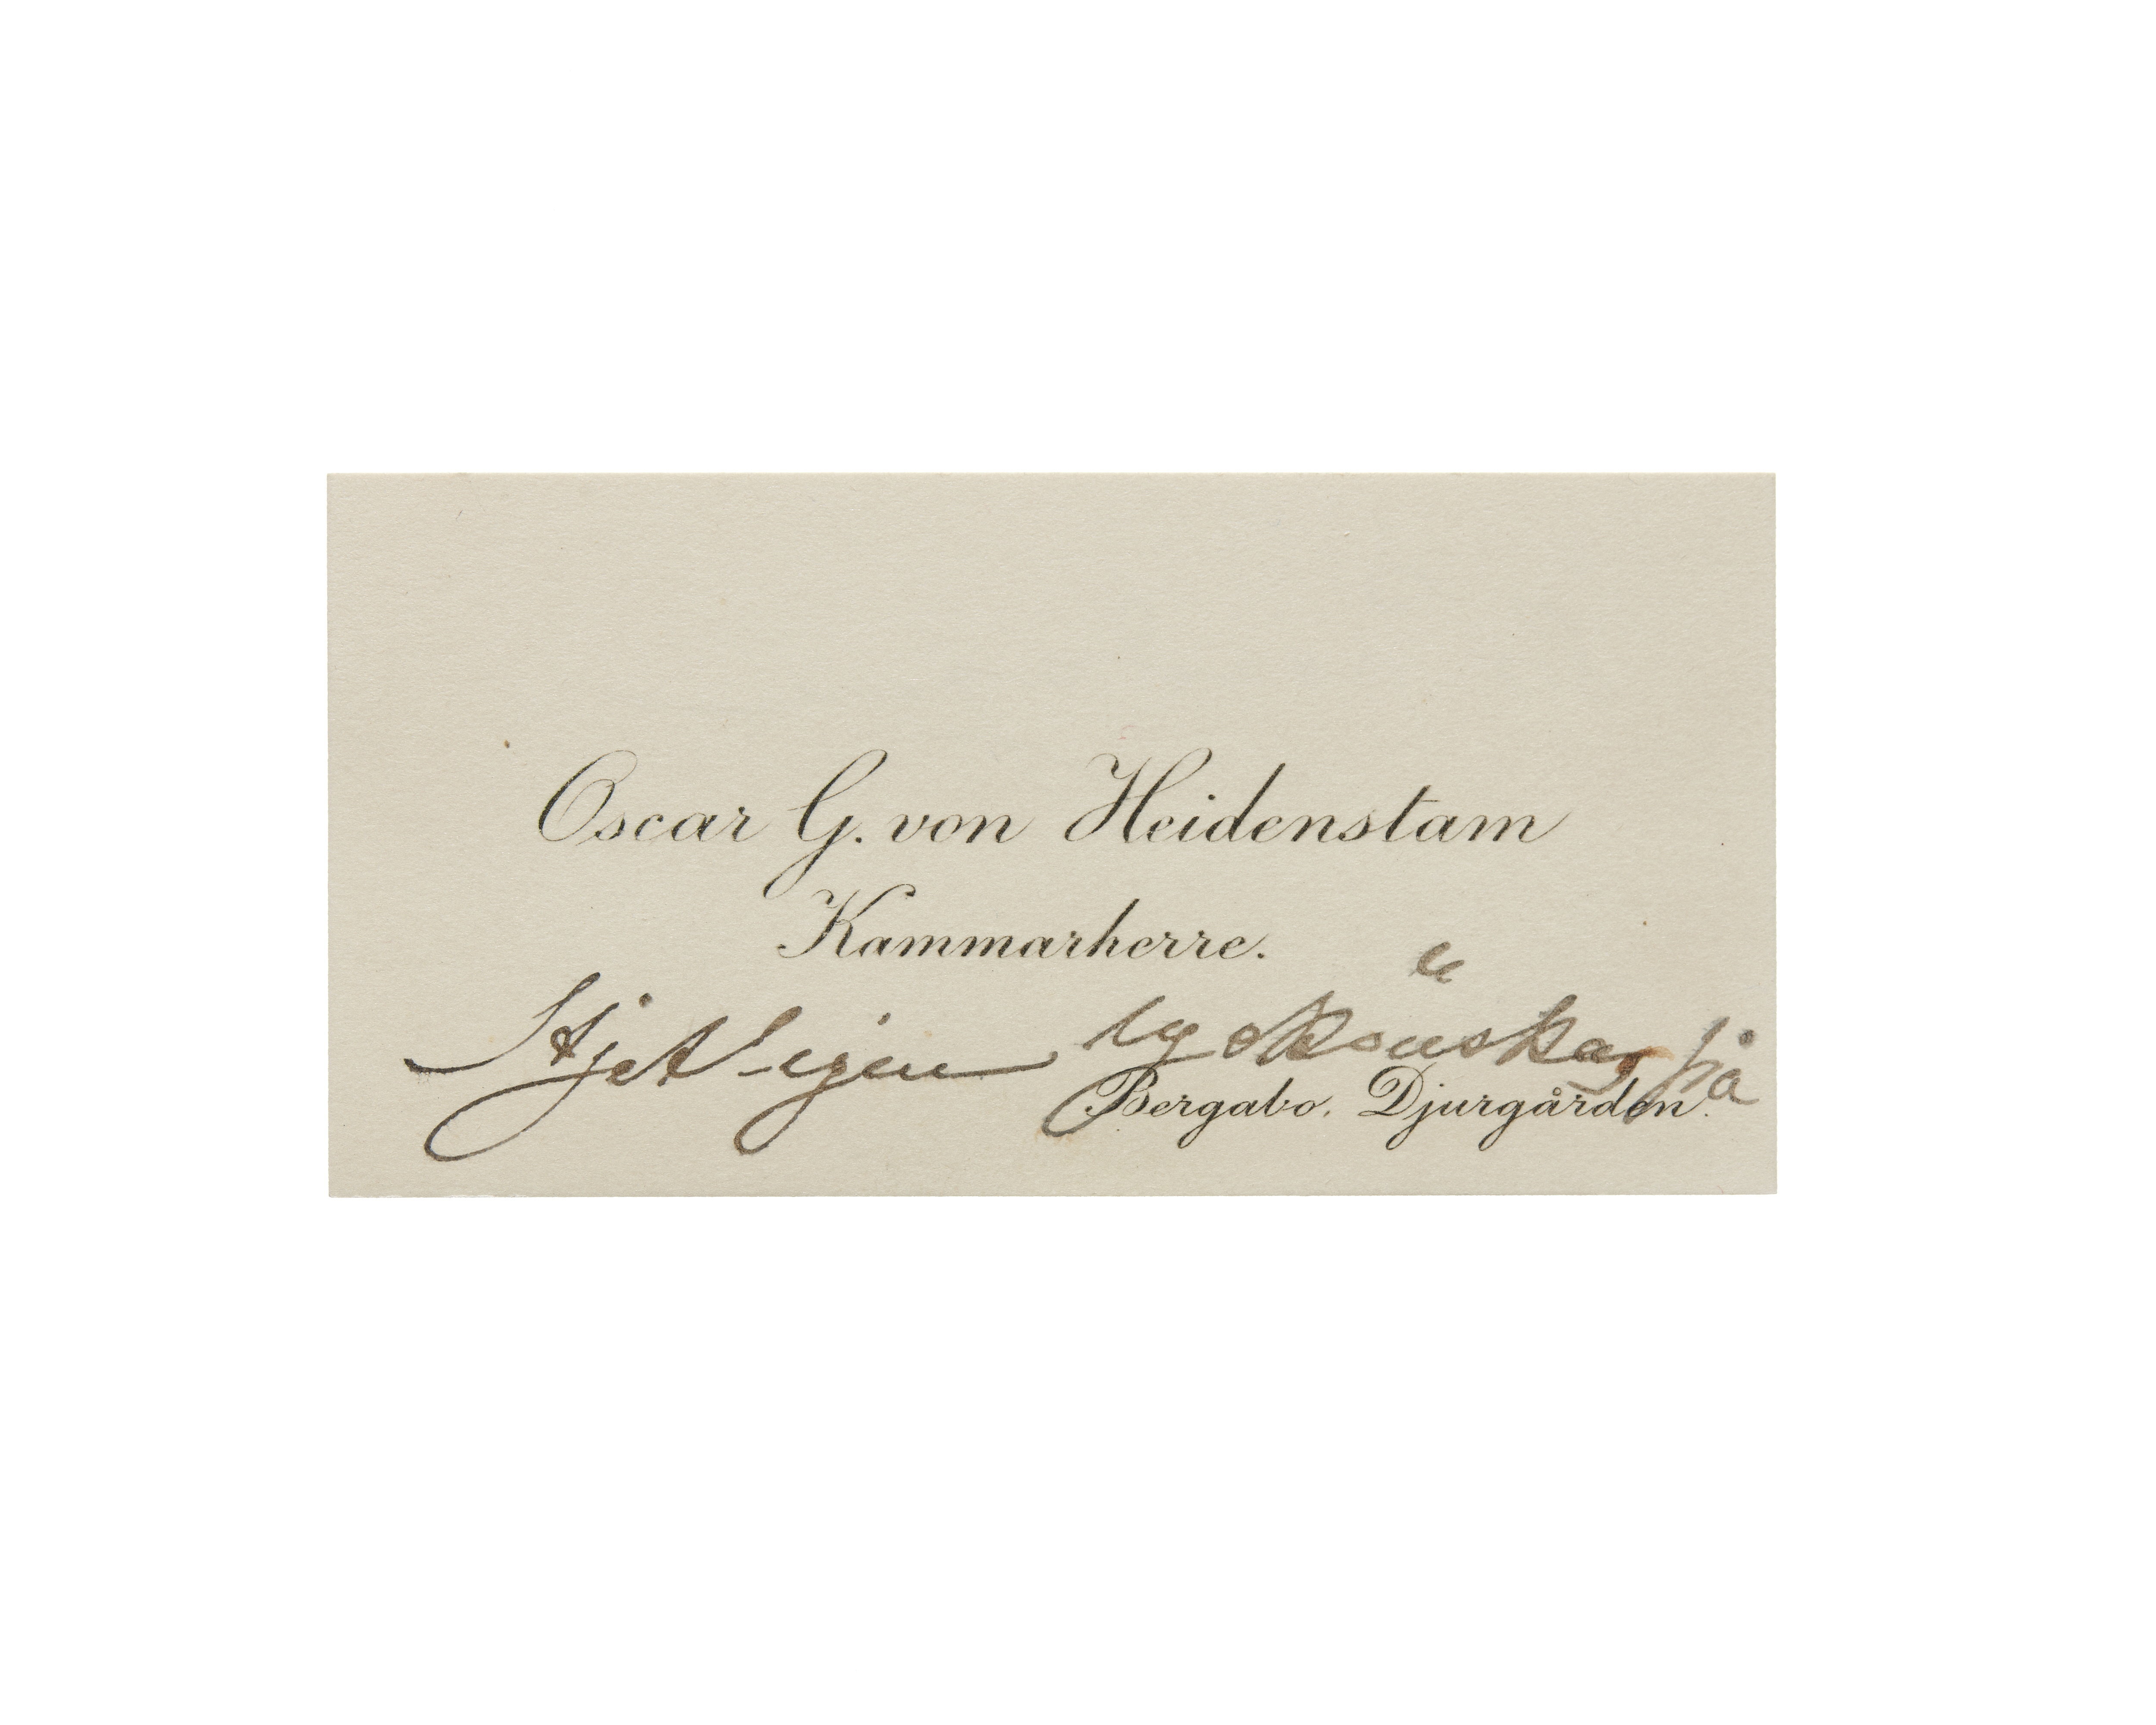 Oscar G. von Heidenstam
Kammarherre.
lyckönskas på
Bergabo. Djurgården.